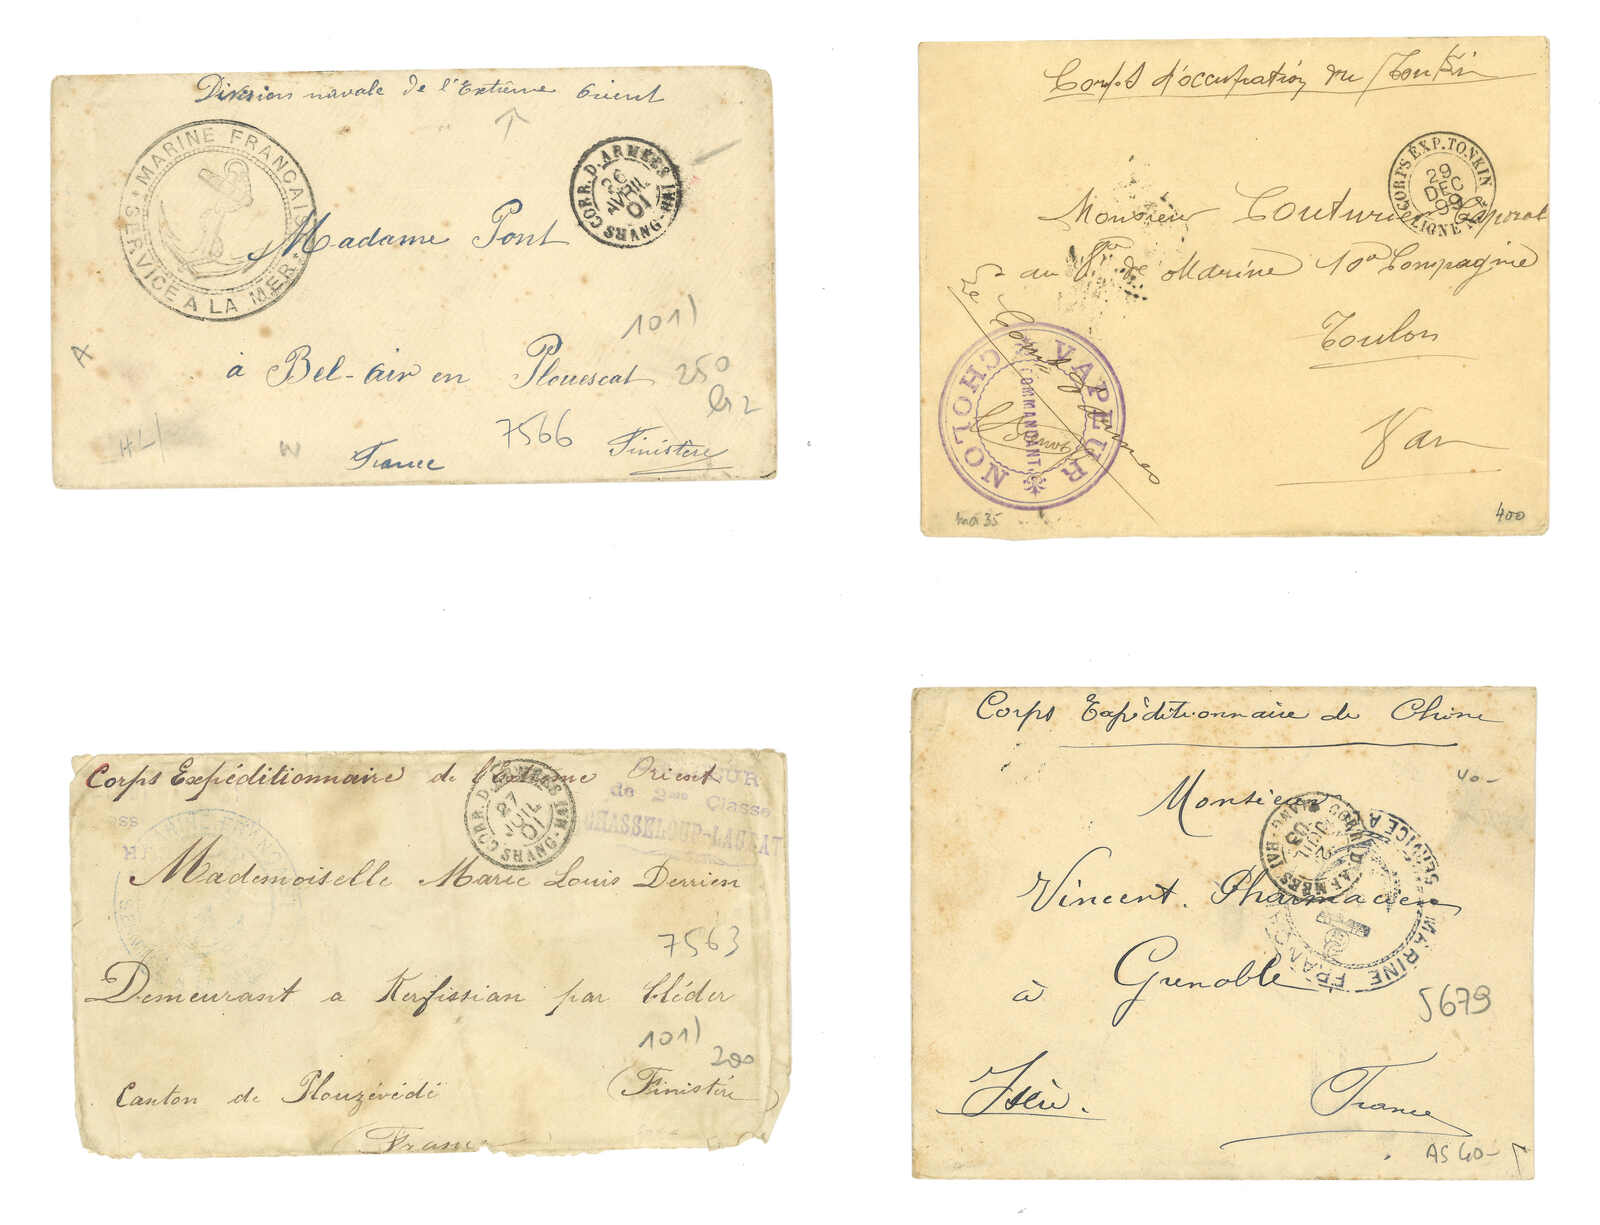 Division navale de l'Extrême Orient
MARINE FRANÇAISE
SERVICE A LA MER
CORR. D. ARMÉES
26
AVRIL
01
SHANG-HAI
Madame Pont
à Bel-air en Plouescat
France
Finistère
101)
250
7566
HL)
W
Corps d'occupation du Tonkin
CORPS EXP. TONKIN
LIGNE N
9
DEC
Monsieur Couturier Caporal
au de Marine 10e Compagnie
Toulon
Var
VAPEUR
COMMANDANT
CHOLON
35
400
Corps Expéditionnaire de l'Extrême Orient
CORR. D. ARMÉES
27
JUIL
01
SHANG-HAI
de 2me Classe
CHASSELOUP-LAUBAT
MARINE FRANÇAISE
Mademoiselle Marie Louis Derrien
7563
Demeurant a Kerfissian par Cléder
101)
200
Canton de Plouzévédé
(Finistère)
(France
Corps Expéditionnaire de Chine
40-
Monsieur
CORR. D. ARMÉES
2
JUIL
03
SHANG-HAI
SERVICE A
MARINE FRANÇA
Vincent. Pharmacien
à Grenoble
5679
Isère.
France
AS 40-